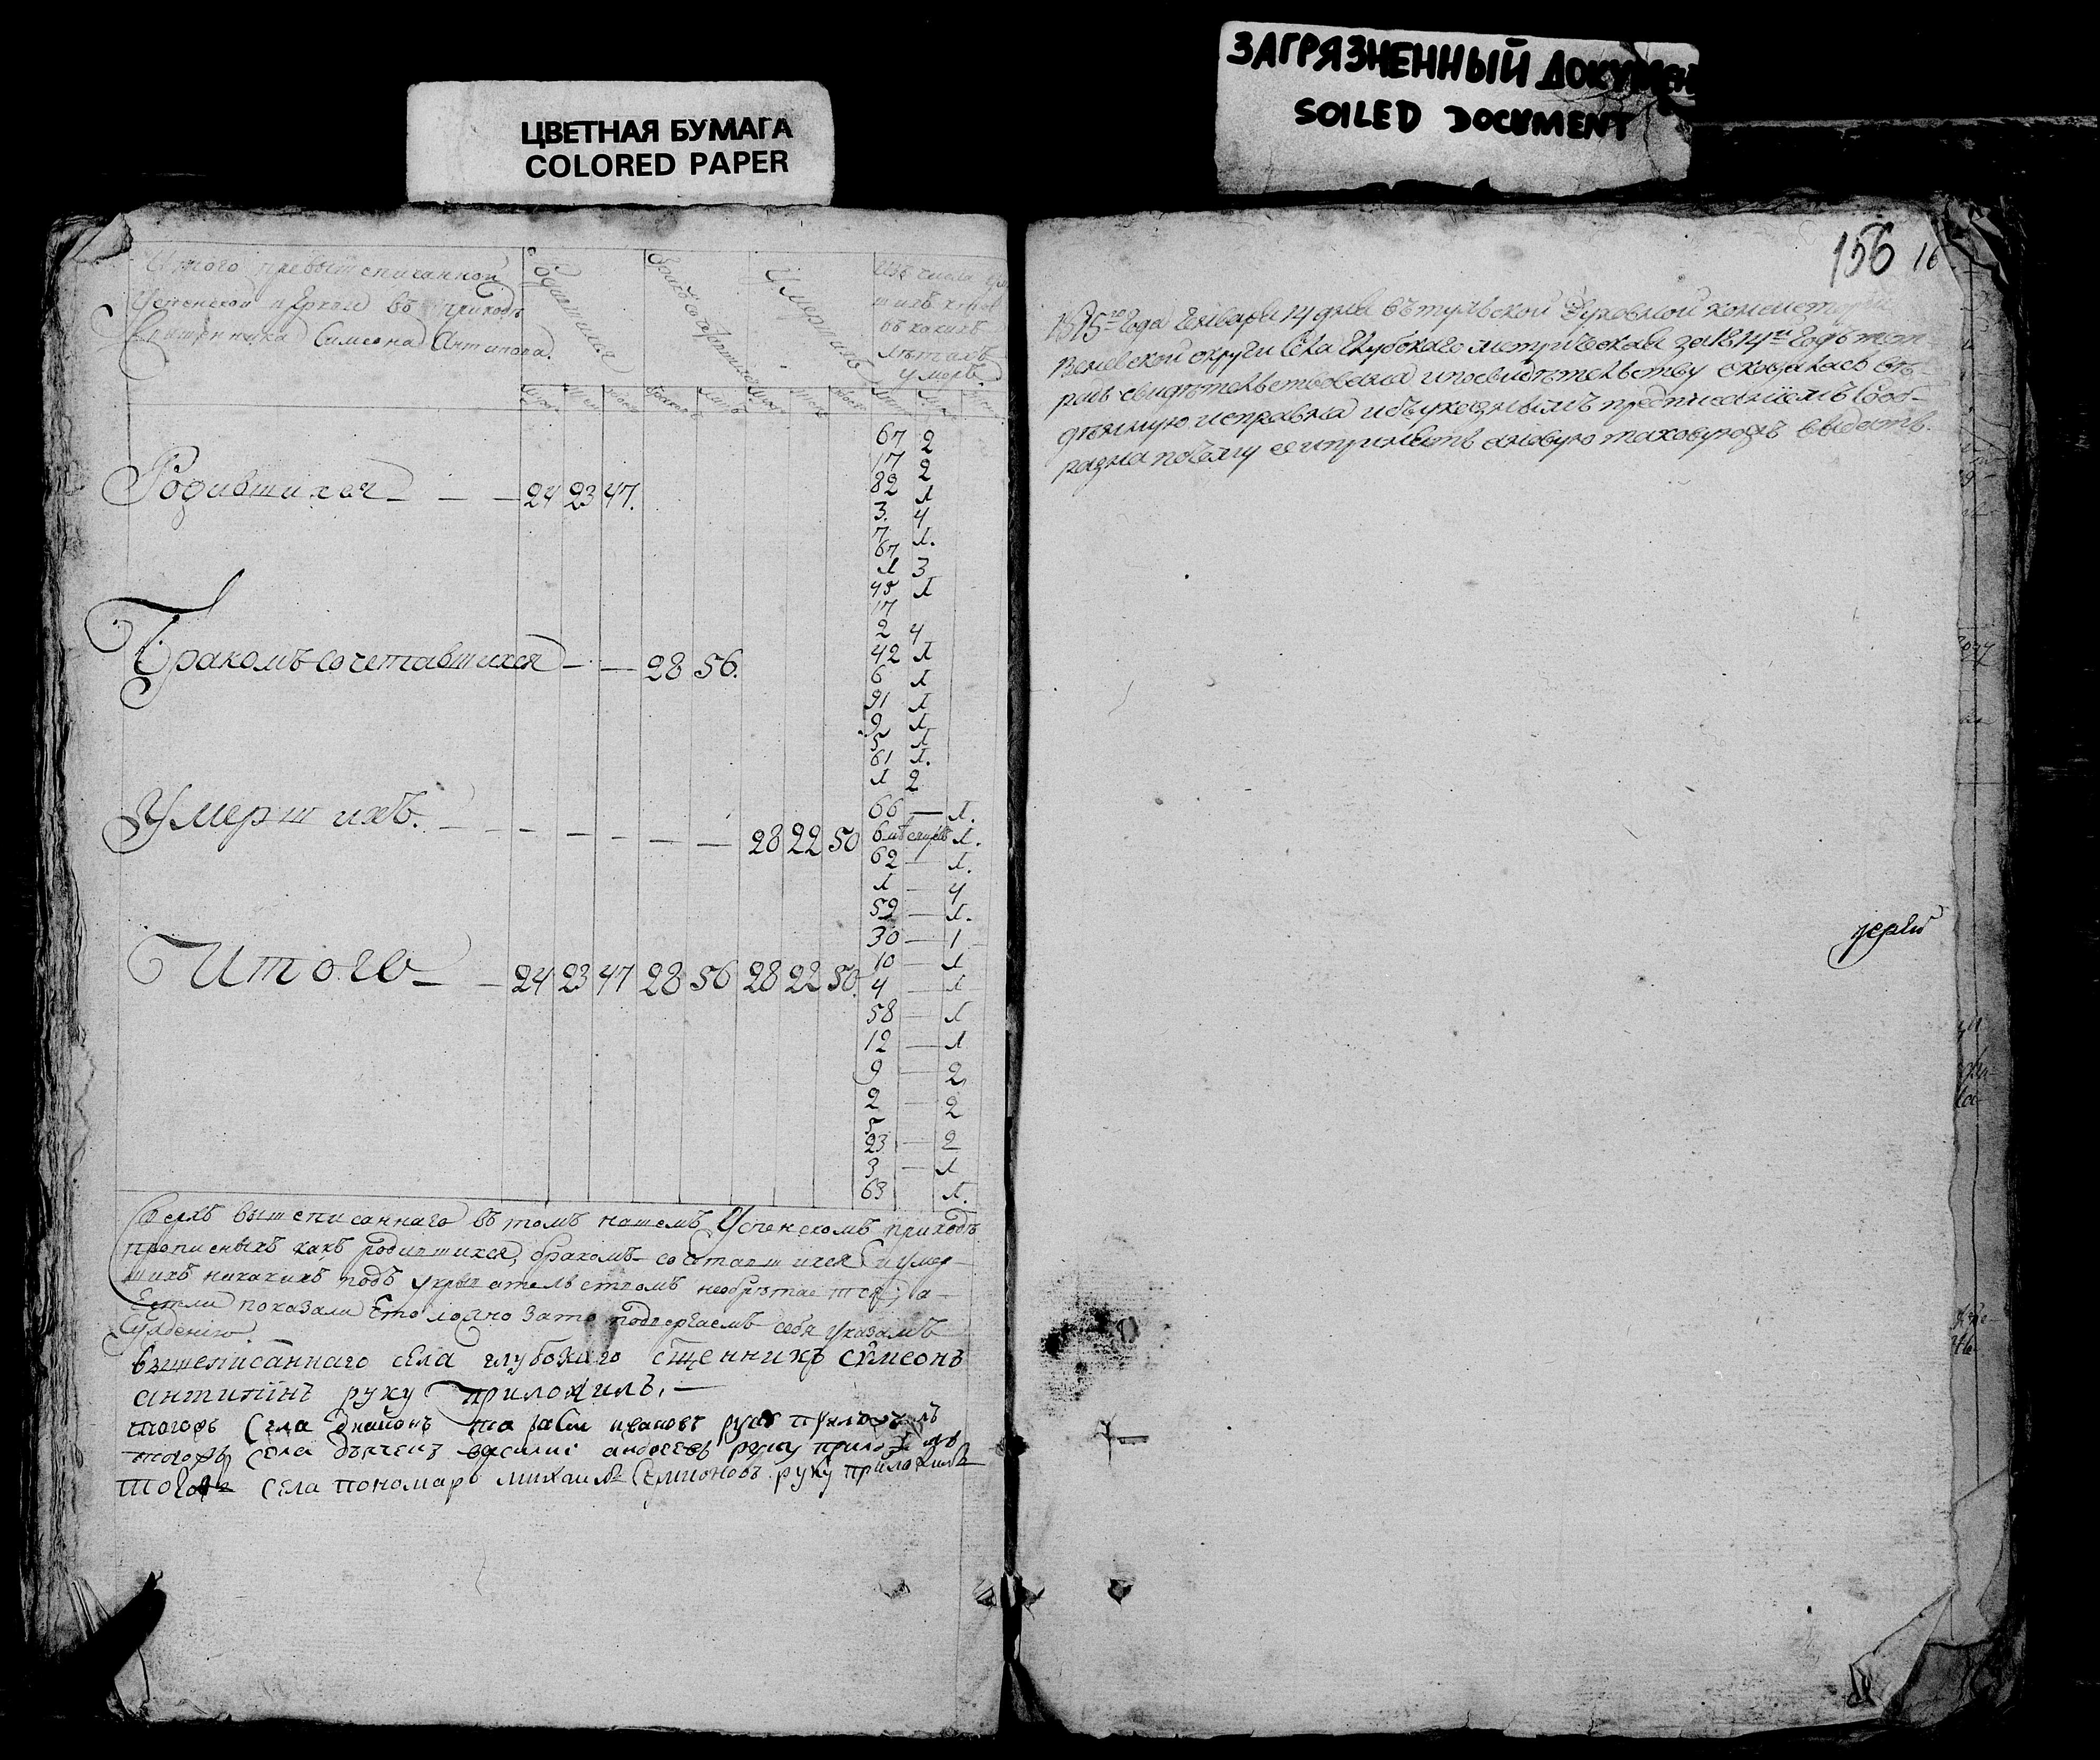 ЦВЕТНАЯ БУМАГА
COLORED PAPER
ЗАГРЯЗНЕННЫЙ ДОКУМЕН
SOILED DOCUMENT
156 16
Итого превыш списанной
Успенской церкви въ приходѣ
Священника Симеона Антипова.
Родившихся
Бракосочетавшихся
Умершихъ
Изъ числа
въ какихъ
лѣтахъ
умерли.
Родившихся — — — 24 23 47.
Бракомъ сочетавшихся — — 28 56.
Умершихъ. — — — — — — — 28 22 50
Итого — — 24 23 47 28 56 28 22 50.
67 2
17 2
82 1
3. 4
7 1.
67
1 3
45 1
17
2 4
42 1
6 1
91 1
9 1
5 1
61 1.
1 2
66 — 1.
6 1.
62 — 1.
1 — 4
59 — 1.
30 — 1
10 — 1
4 — 1
58 — 1
12 — 1
9 — 2
2 — 2
5
23 — 2
3 — 1
63 1.
Сверхъ вышеписаннаго въ томъ нашемъ Успенскомъ приходѣ
прописныхъ какъ родившихся, бракомъ сочетавшихся и умер-
шихъ никакихъ подъ укрывательствомъ необрѣтается, а
Естли показали что ложно зато подвергаемъ себя указамъ
Суждению.
вышеписаннаго села глубокаго сщенникъ сѵмеонъ
антипинъ руку приложилъ. —
тогожъ Села иванов руку приложилъ
тогожъ села дьячекъ василии андреевъ руку приложилъ
тогожъ села пономарь михаилъ Семионовъ руку приложилъ
1815го Года Генваря 14 дня въ тульской Духовной консистории
Веневской округи села Глубокаго метрическая за 1814й Годъ тет-
радь свидѣтельствована и посвидѣтельству оказалась вѣ-
денною исправна и съ указнымъ предписаниемъ сооб-
разна почему ее и принять а новую таковуюжъ выдать.
иерей